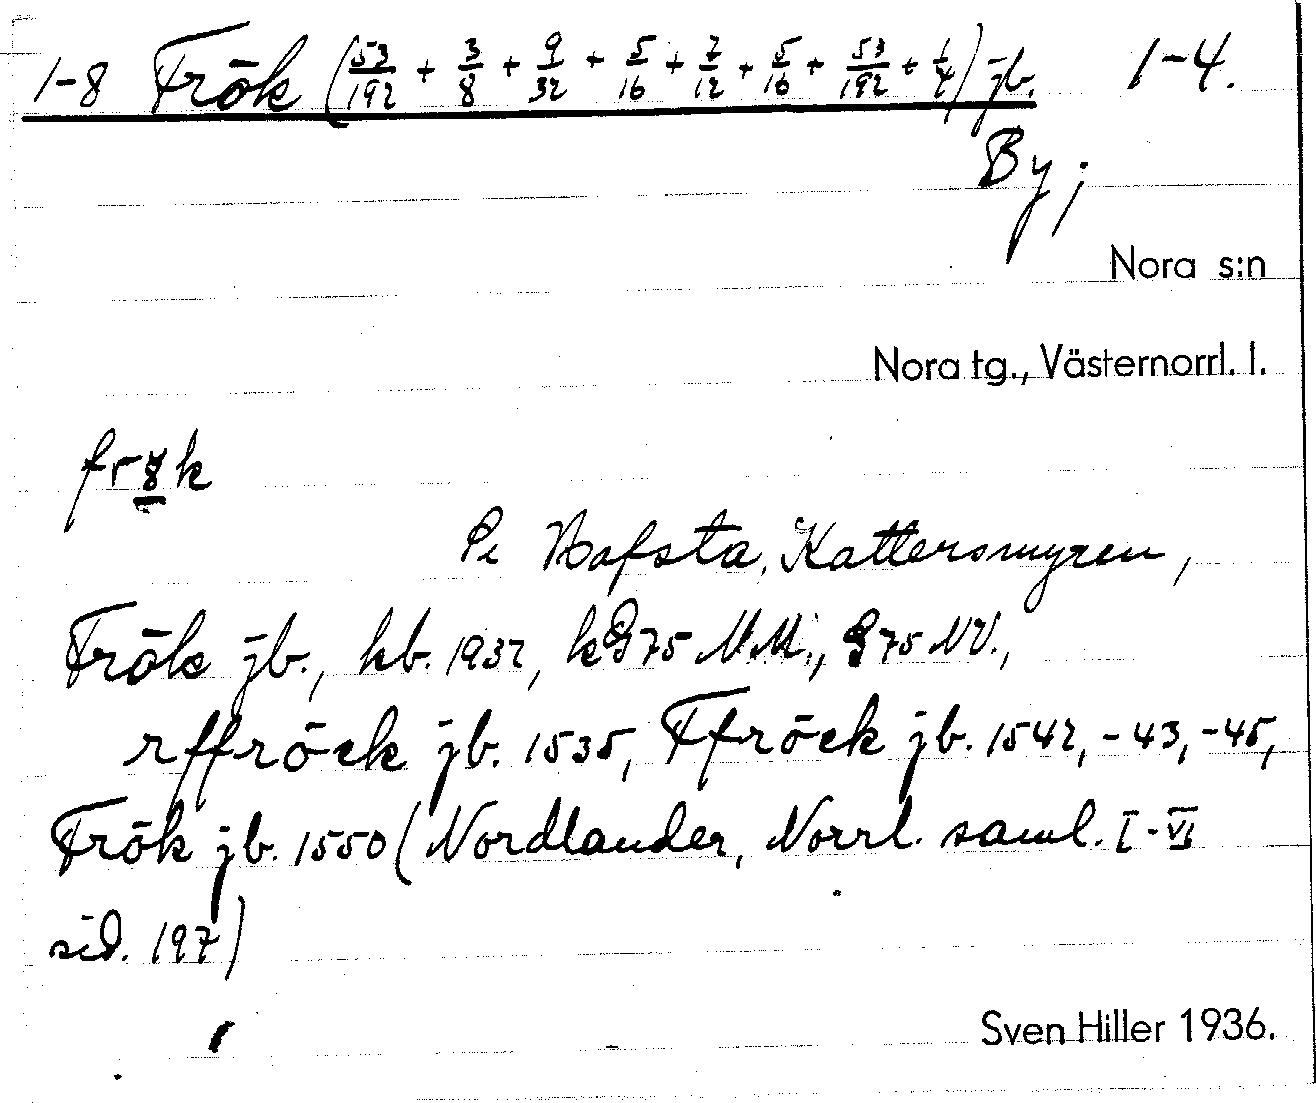 1-8 Frök (53/192 + 3/8 + 9/32 + 5/16 + 7/12 + 5/16 + 53/192 + 1/4) jb. 1-4.
By;
Nora s:n
Nora tg., Västernorrl. l.
frøk
Hofsta, Kattersmyren,
Frök jb., kb. 1937, k G75 NV.,
ffröck jb. 1535, Ffröck jb. 1542, -43, -45,
Frök jb. 1550 (Nordlander, Norrl. saml. I-VI
sid. 197)
Sven Hiller 1936.